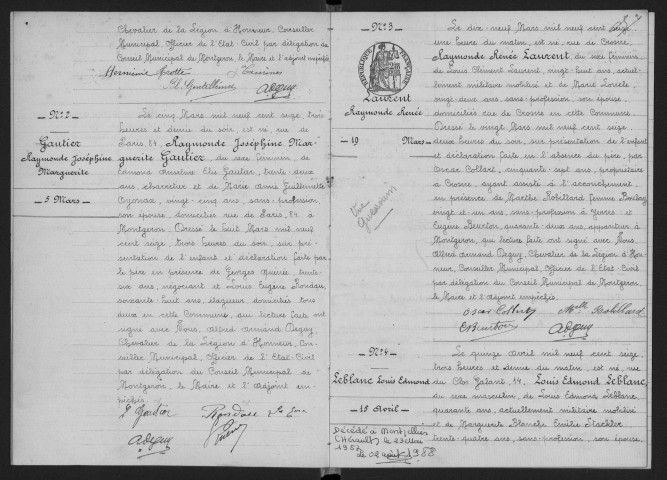 Chevalier de la Légion d'Honneur, Conseiller
Municipal, Officier de l'Etat-Civil par délégation du
Conseil Municipal de Montgeron, le Maire et l'adjoint empêchés.
Nº 2
Gautier
Raymonde Joséphine
Marguerite
5 Mars
Le cinq Mars mil neuf cent seize, trois
heures et demie du soir est né, rue de
Paris, 84, Raymonde Joséphine Mar-
guerite Gautier, du sexe féminin, de
Edmond Anselme Elie Gautier, trente-deux
ans, charretier et de Marie Anne Guillemette
vingt-cinq ans, sans profession,
son épouse, domiciliés rue de Paris, 84 à
Montgeron. Dressé le huit Mars mil neuf
cent seize, trois heures du soir, sur pré-
sentation de l'enfant et déclaration faite par
le père en présence de Georges trente-
six ans, négociant et Louis Eugène Rondeau,
soixante huit ans, élagueur domiciliés tous
deux en cette Commune, qui lecture faite ont
signé avec Nous, Alfred Armand Deguy,
Chevalier de la Légion d'Honneur, Con-
seiller Municipal, Officier de l'Etat-Civil
par délégation du Conseil Municipal de
Montgeron, le Maire et l'Adjoint em-
pêchés.
E. Gautier
A Deguy
Nº 3
RÉPUBLIQUE FRANÇAISE
Laurent
Raymonde Renée
19 Mars
Le dix-neuf Mars mil neuf cent seize
une heure du matin, est né, rue de Crosne,
Raymonde Renée Laurent, du sexe féminin
de Louis Clément Laurent, vingt huit ans, actuel-
lement militaire mobilisé et de Marie
vingt-deux ans, sans profession, son épouse,
domiciliés rue de Crosne en cette Commune.
Dressé le vingt Mars mil neuf cent seize
deux heures du soir, sur présentation de l'enfant
et déclaration faite en l'absence du père, par
Oscar Collart, cinquante-sept ans, propriétaire
à Crosne, ayant assisté à l'accouchement
en présence de Marthe Robillard femme
vingt et un ans, sans profession à Yerres et
Eugène quarante-deux ans, appariteur à
Montgeron, qui lecture faite ont signé avec Nous,
Alfred Armand Deguy, Chevalier de la Légion d'Hon-
neur, Conseiller Municipal, Officier de l'Etat-Civil
par délégation du Conseil Municipal de Montgeron,
le Maire et l'Adjoint empêchés.
Oscar Collart Robillard
A Deguy
Nº 4
Leblanc Louis Edmond
15 Avril
Décédé à Montpellier
(Hérault) le
1988
Le quinze Avril mil neuf cent seize,
trois heures et demie du matin, est né, rue
du Clos Galant, 14, Louis Edmond Leblanc,
du sexe masculin, de Louis Edmond Leblanc,
quarante ans, actuellement militaire mobilisé
et de Marguerite Blanche Emilie
trente-quatre ans, sans profession, son épouse,